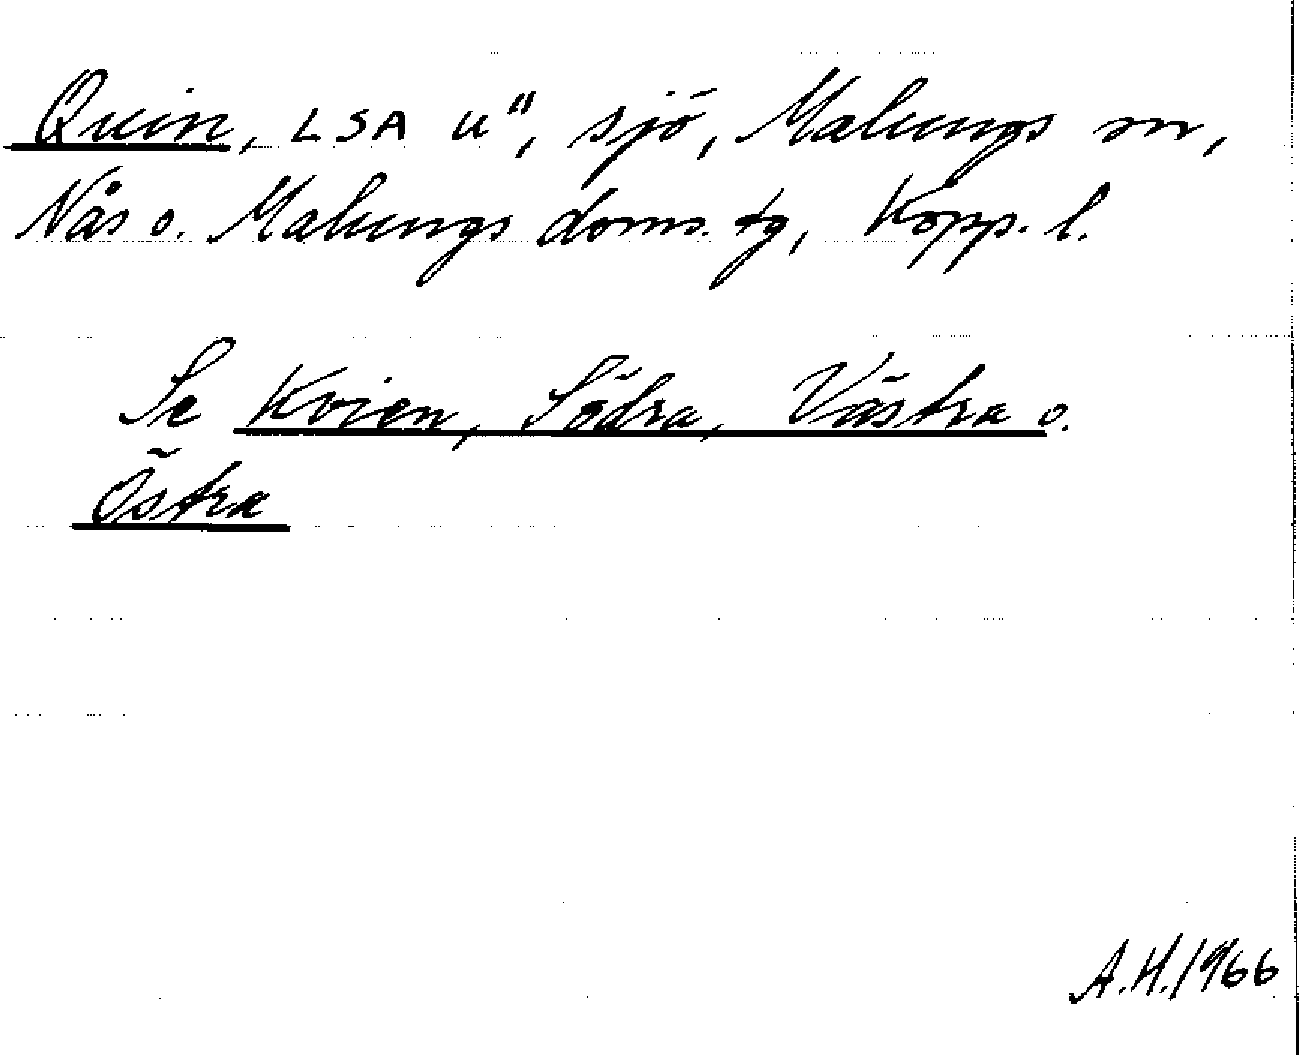 Quin, LSA u", sjö, Malungs sn,
Nås o. Malungs doms. tg, Kopp. l.
Se Kvien, Södra, Västra o.
Östra
A.H./1966